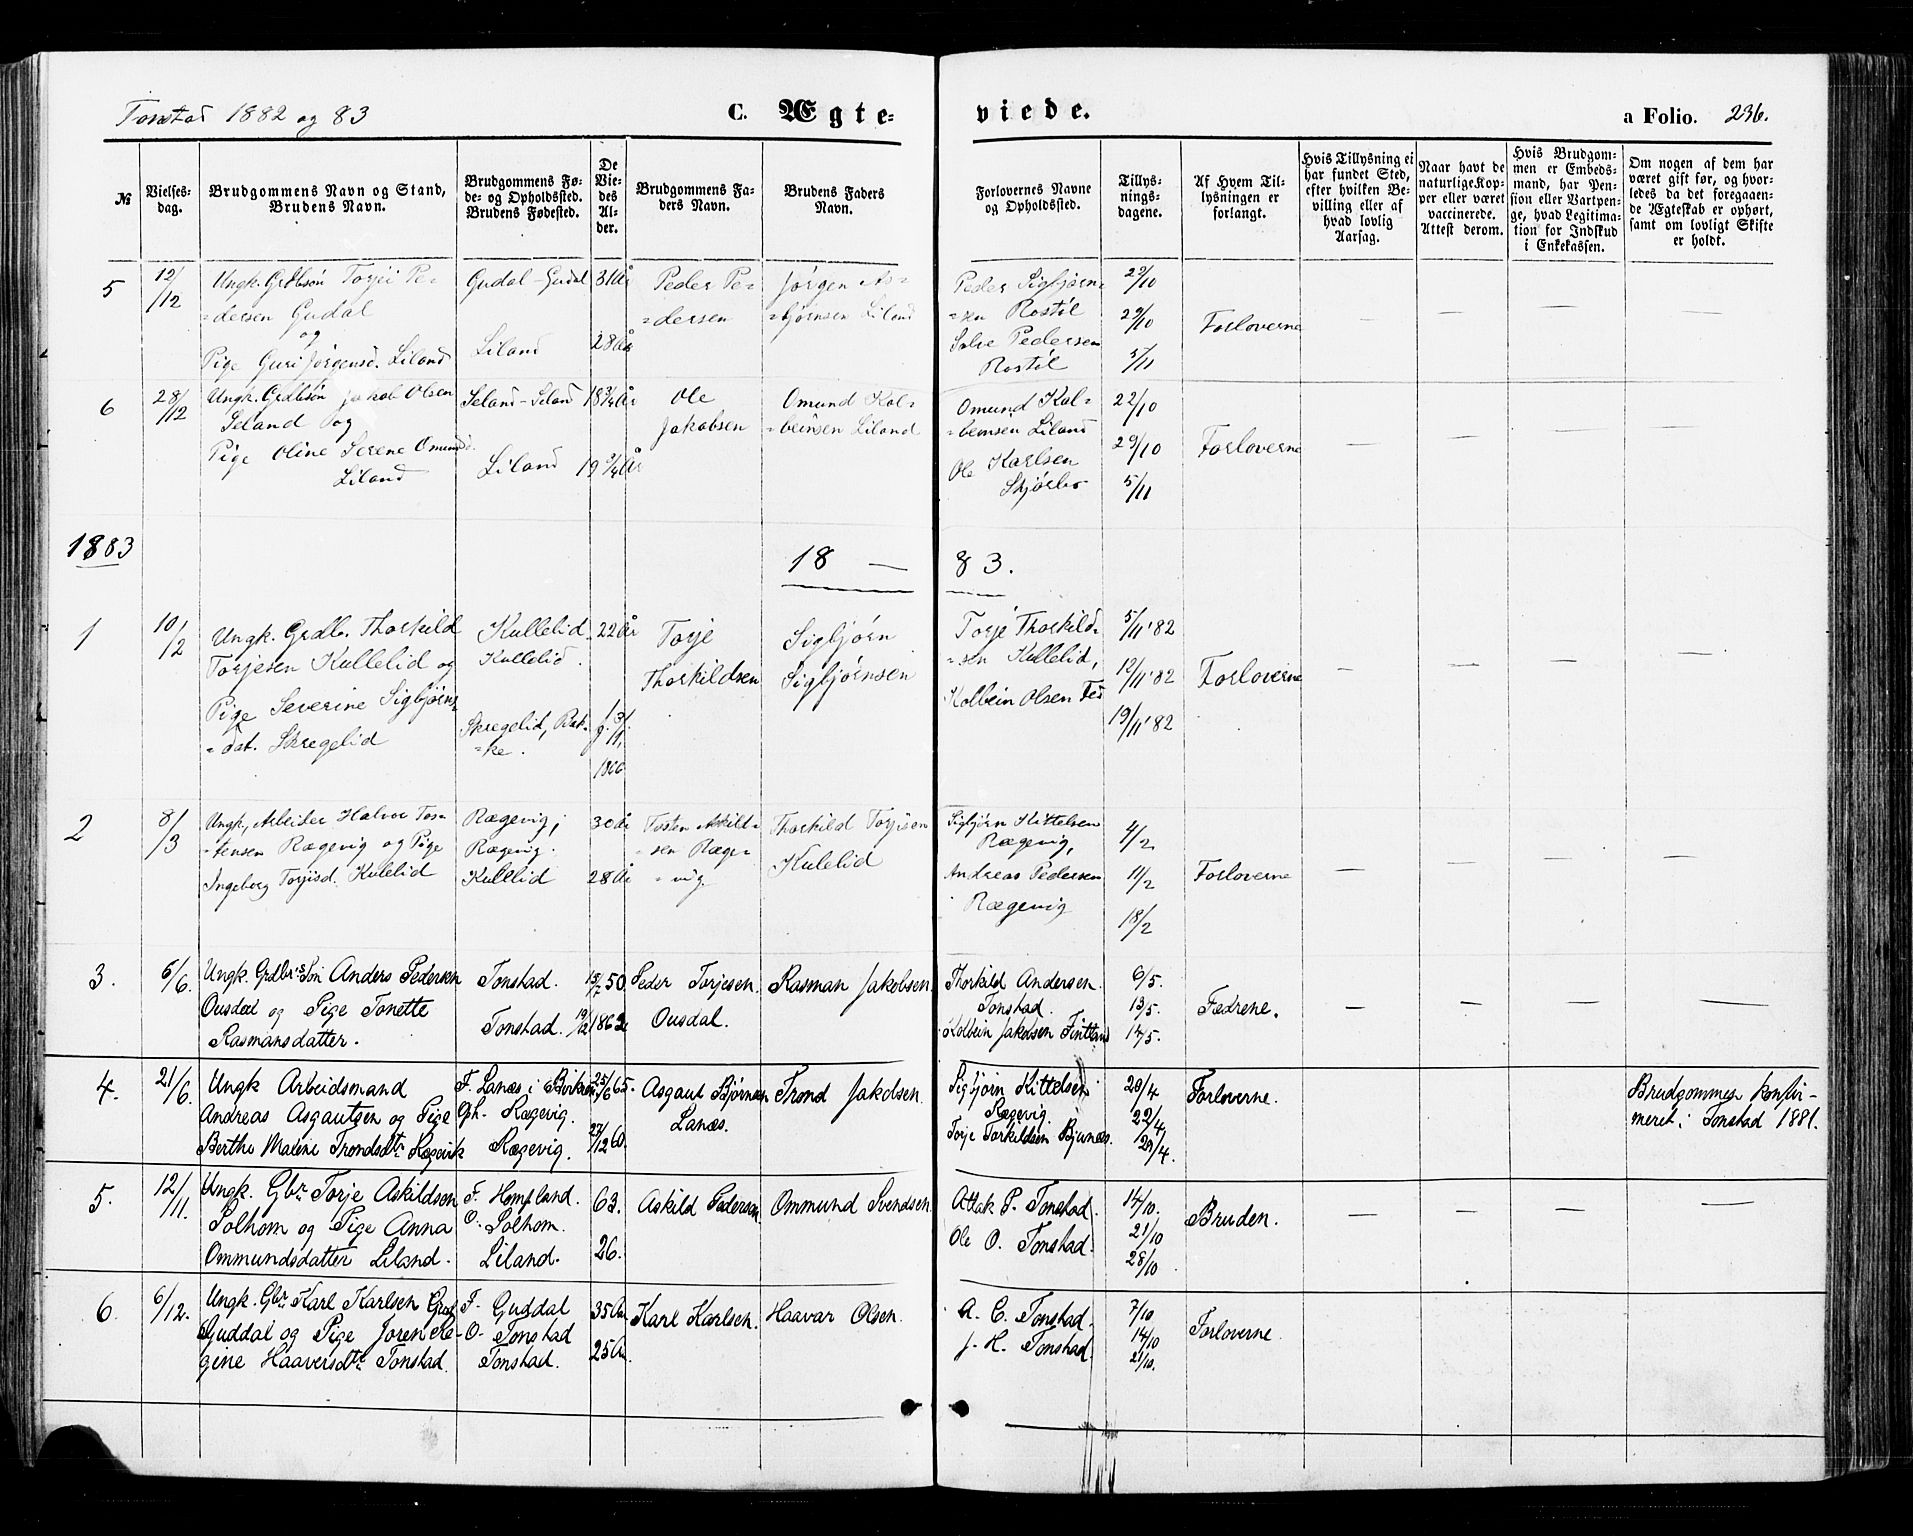 Tonstad 1882 og 83
C. Ægte-
viede.
a Folio. 236.
№
Vielses-
dag.
Brudgommens Navn og Stand,
Brudens Navn.
Brudgommens Fø-
de- og Opholdssted.
Brudens Fødested.
De
Vie-
des
Al-
der.
Brudgommens Fa-
ders Navn.
Brudens Faders
Navn.
Forlovernes Navne
og Opholdssted.
Tillys-
nings-
dagene.
Af Hvem Til-
lysningen er
forlangt.
Hvis Tillysning ei
har fundet Sted,
efter hvilken Be-
villing eller af
hvad lovlig
Aarsag.
Naar havt de
naturlige Kop-
per eller været
vaccinerede.
Attest derom.
Hvis Brudgom-
men er Embeds-
mand, har Pen-
sion eller Vartpen-
ge, hvad Legitima-
tion for Indskud
i Enkekassen.
Om nogen af dem har
været gift før, og hvor-
ledes da det foregaaen-
de Ægteskab er ophørt,
samt om lovligt Skifte
er holdt.
5
12/12
Ungk. Grdbsøn Torjei Pe-
=dersen Gudal
og
Pige Guri Jørgensd. Liland
Gudal-Gudal
Liland
31 År
28 År
Peder Pe-
=dersen
Jørgen As-
=bjørnsen Liland
Peder Sigbjørn-
=sen Rostøl
Salve Pedersen
Rostøl
29/10
5/11
Forloverne
6
28/12
Ungk. Grdbsøn Jakob Olsen
Seland og
Pige Oline Serene Omunds.
Liland
Seland-Seland
Liland
18 3/4 År
19 3/4 År
Ole
Jakobsen
Omund Kol-
=beinsen Liland
Omund Kol-
=beinsen Liland
Ole Karlsen
22/10
29/10
5/11
Forloverne
1883
18 —
83.
1
10/2
Ungk. Grdb. Thorkild
Torjesen Kullelid og
Pige Severine Sigbjørns-
=dat. Skregelid
Kullelid
Kullelid.
Skregelid, Bak-
=ke.
22 År
1866
Torje
Thorkildsen
Sigbjørn
Sigbjørnsen
Torje Thorkild-
=sen Kullelid,
Kolbein Olsen Fed
5/11 '82
12/11 '82
19/11 '82
Forloverne
2
8/3
Ungk, Arbeider Halvor Tos-
=tensen Rægevig og Pige
Ingeborg Torjisd. Kulelid
Rægevig;
Rægevig.
Kullelid
30 År
28 År
Tosten Askild-
=sen Ræge-
=vig.
Thorkild Torjisen
Kulelid
Sigbjørn Kittelsen
Rægevig,
Andreas Pedersen
Rægevig
4/2
11/2
18/2
Forloverne
3.
6/6.
Ungk. Grdbr's Søn Anders Pedersen
Ousdal og Pige Tonette
Rasmansdatter.
Tonstad.
Tonstad.
15/7 50.
19/12 1862
Peder Torjesen.
Ousdal.
Rasman Jakobsen.
Thorkild Andersen.
Tonstad.
Kolbein Jakobsen Fintland
6/5.
13/5.
14/5.
Fædrene.
4.
21/6.
Ungk Arbeidsmand
Andreas Asgautsen og Pige
Berthe Malene Trondsdtr Rægevik
F. Lanæs i Birkrem
Oph. Rægevig.
Rægevig.
25/6 65.
27/12 60.
Asgaut Bjørnsen
Lanæs.
Trond Jakobsen.
Sigbjørn Kittelsen
Rægevig.
Torje Torkildsen Bjunæs.
20/4
22/4.
29/4.
Forloverne.
Brudgommen konfir-
meret i Tonstad 1881.
5.
12/11.
Ungk. Gbr Torje Askildsen
Solhom og Pige Anna
Ommundsdatter Liland.
F. Hompland.
O. Solhom.
Liland.
63.
26.
Askild Pedersen
Ommund Svendsen.
Attak P. Tonstad.
Ole O. Tonstad.
14/10.
21/10
28/10.
Bruden.
6.
6/12.
Ungk. Gbr Karl Karlsen Gud
Guddal og Pige Joren Re-
gine Haaversdtr Tonstad.
F. Guddal
O. Tonstad
Tonstad.
35 Aar
25 Aar.
Karl Karlsen.
Haavar Olsen.
A. C. Tonstad.
J. H. Tonstad
7/10
14/10
21/10.
Forloverne.